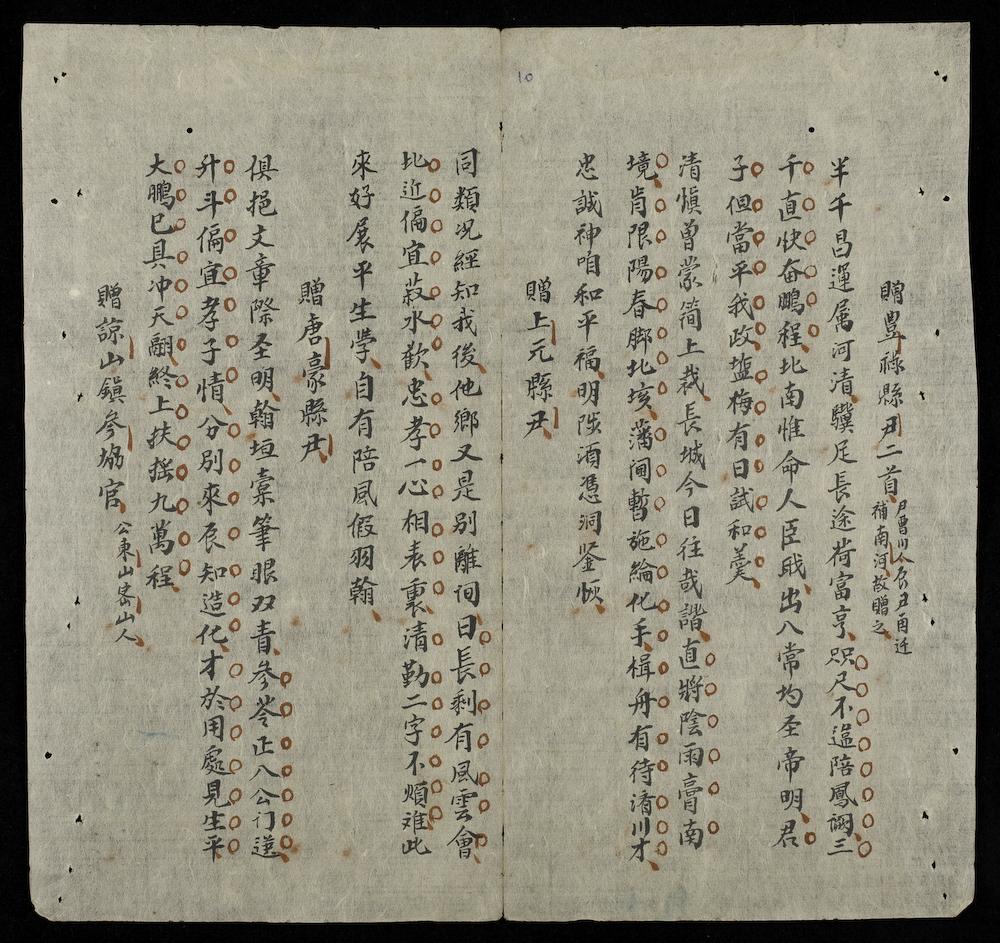 10
贈豊祿縣尹二首
尹曾川人辰丑酉迁
補南河故贈之
半千昌運属河清驥足長途荷富亨咫尺不遥陪鳳諏三
千直快奋鵬程北南惟命人臣戝出入常均圣帝明君
子但當平我政塩梅有日試和羹
清慎曽蒙简上裁長城今日往哉諧直將陰雨膏南
境肯限陽春脚北垓藩闸暫施綸化手楫舟有待濟川才
忠誠神咱和平福明陟酒憑洞鉴恢
贈上元縣尹
同類况經知我後他鄉又是别離间日長剩有風雲會
北近偏宜菽水歡忠孝一心相表裏清勤二字不煩难此
來好展平生學自有陪風假羽翰
贈唐豪縣尹
俱挹文章際圣明翰垣橐筆眼双青参苓正入公门送
升斗偏宜孝子情分别來辰知造化才於用處見生平
大鵬已具冲天翮終上扶摇九萬程
贈諒山鎮参协官
公東山宻山人